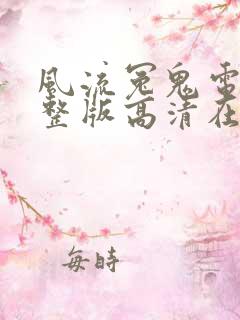 風流冤鬼電
整版高清在
每時